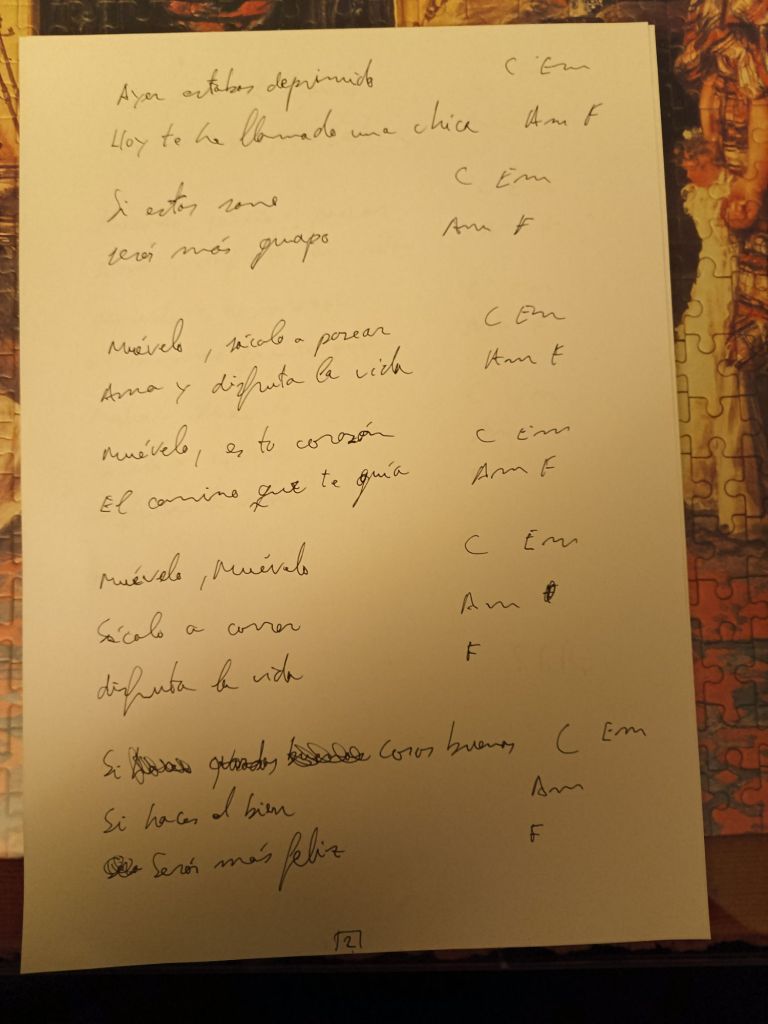 Ayer estabas deprimido C Em
Hoy te ha llamado una chica Am F
Si estás sano C Em
serás más guapo Am F
Muévelo, sácalo a pasear C Em
Ama y disfruta la vida Am F
Muévelo, es tu corazón C Em
El camino que te guía Am F
Muévelo, Muévelo C Em
Sácalo a correr Am
disfruta la vida F
Si guardas cosas buenas C Em
Si haces el bien Am
Serás más feliz F
2